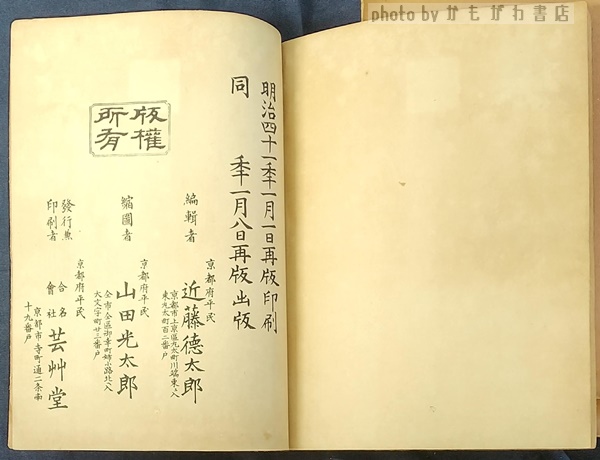 photo by かもがわ書店
明治四十一年一月一日再版印刷
同 年一月八日再版出版
版權
所有
編輯者
京都府平民
近藤德太郎
京都市上京區丸太町川端東ヘ入
東丸太町百二番戸
縮圖者
京都府平民
山田光太郎
仝市仝區御幸町姉小路北ヘ入
大文字町廿三番戸
發行兼
印刷者
京都府平民
合名
會社
芸艸堂
京都市寺町通二条南
十九番戸